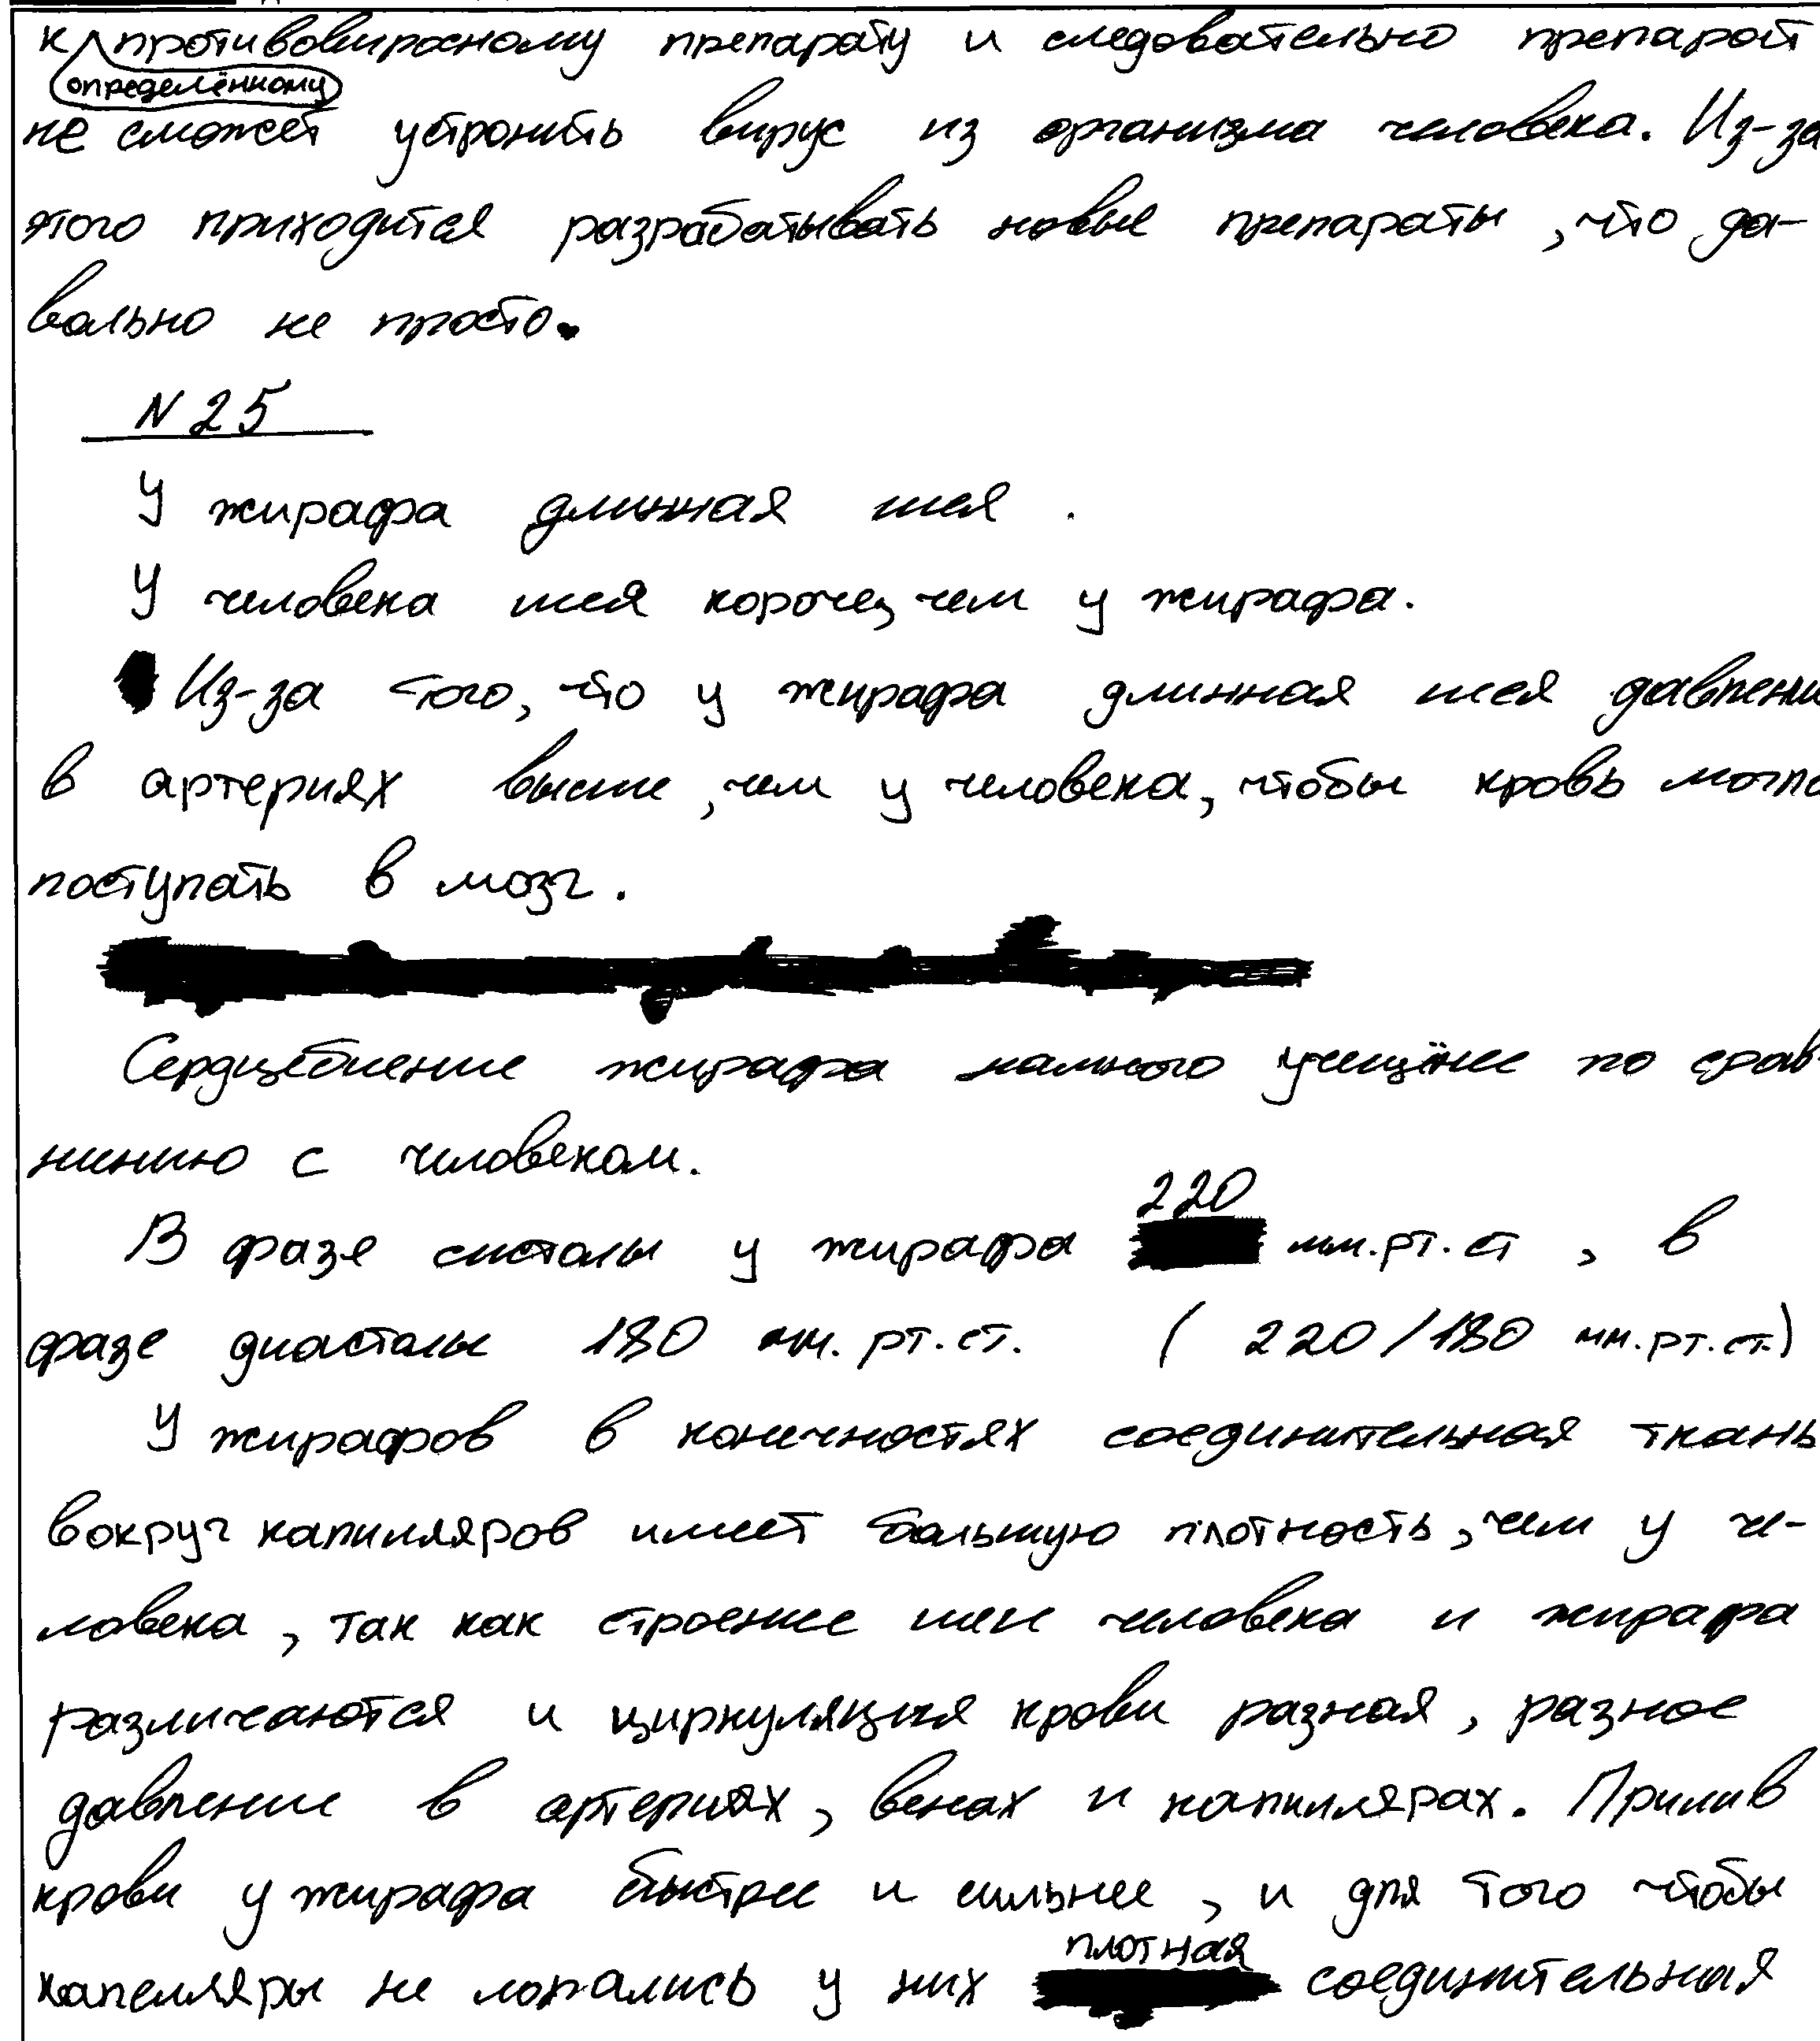 к определённому противовирусному препарату и следовательно препарат
не сможет устронить вирус из организма человека. Из-за
этого приходится разрабатывать новые препараты, что да-
вольно не просто.
N 25
У жирафа длинная шея.
У человека шея короче, чем у жирафа.
Из-за того, что у жирафа длинная шея давлени
в артериях выше, чем у человека, чтобы кровь могла
поступать в мозг.
Сердцебиение жирафа намного учещёнее по срав-
нению с человеком.
В фазе систолы у жирафа 220 мм.рт.ст, в
фазе диастолы 180 мм.рт.ст. (220/180 мм.рт.ст.)
У жирафов в конечностях соединительная ткань
вокруг капилляров имеет большую плотность, чем у че-
ловека, так как строение шеи человека и жирафа
различаются и циркуляция крови разная, разное
давление в артериях, венах и капиллярах. Прилив
крови у жирафа быстрее и сильнее, и для того чтобы
капелляры не лопались у них плотная соединительная